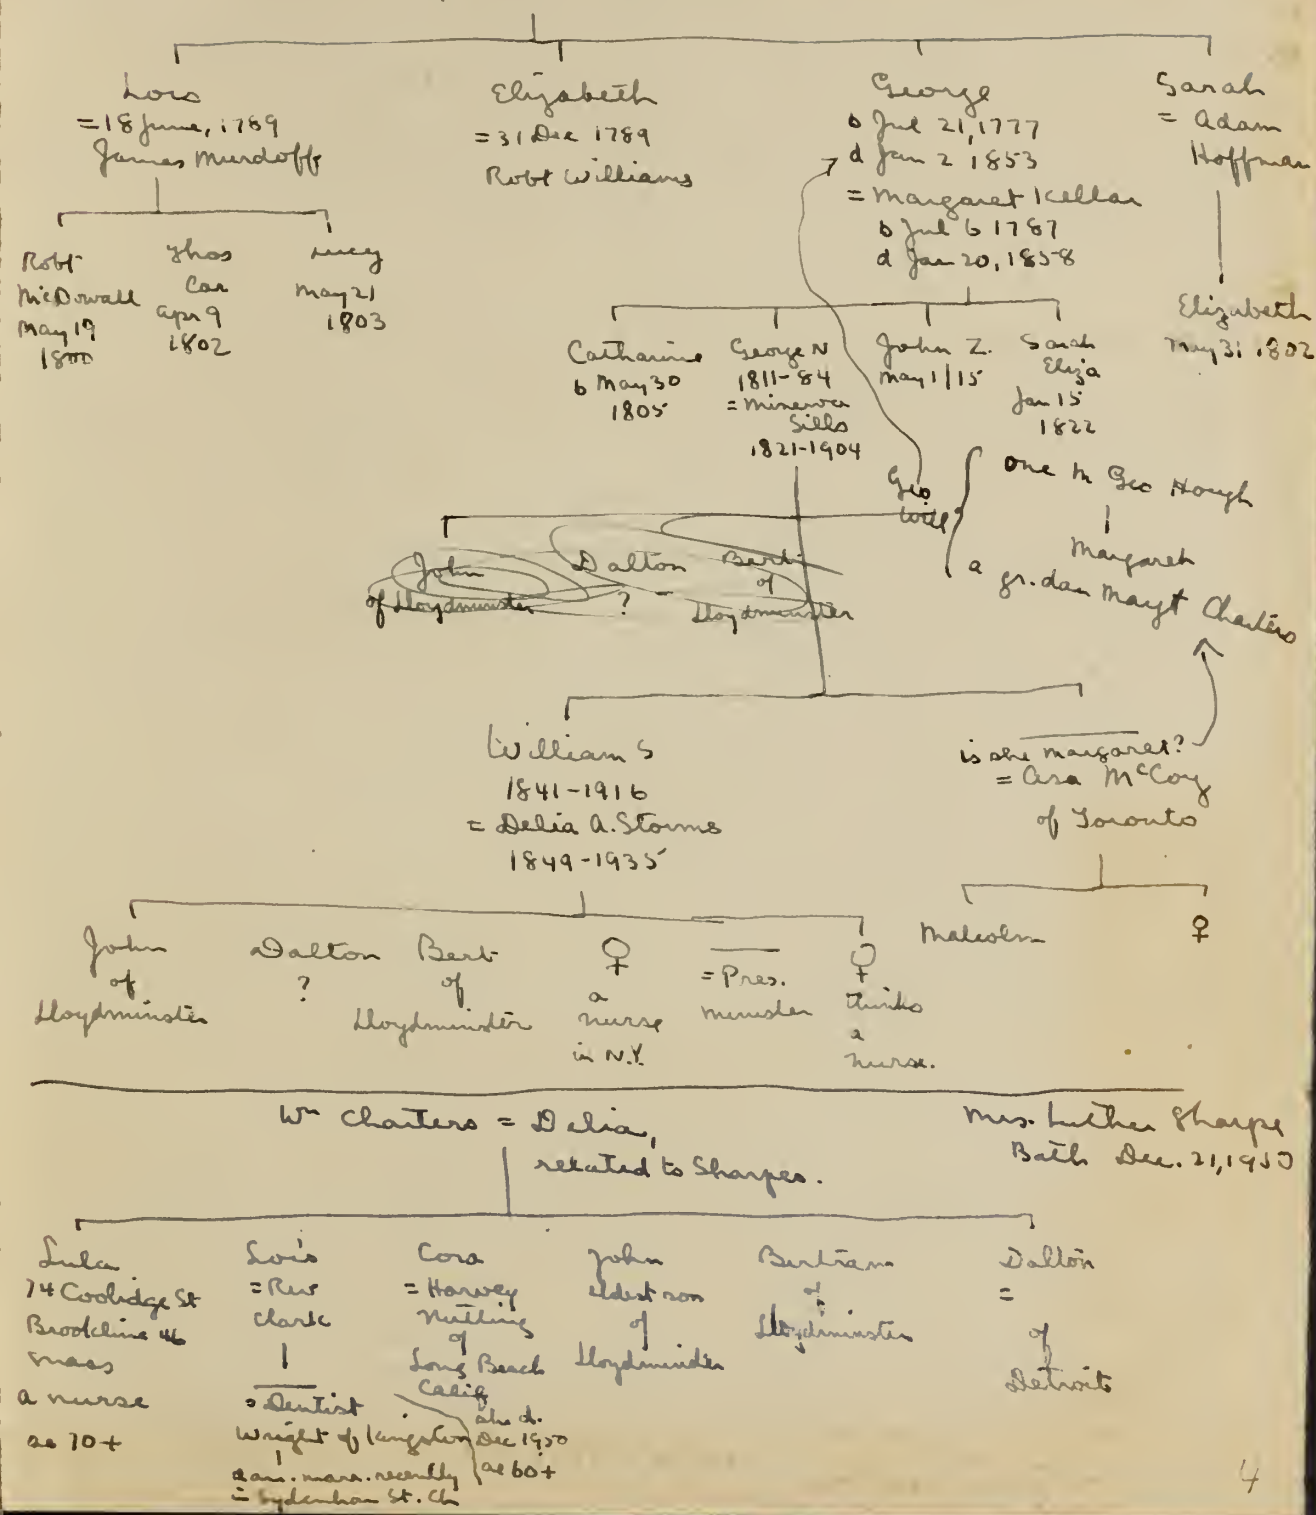 Lois
= 18 June, 1789
James Murdoff
Elizabeth
= 31 Dec 1789
Robt Williams
George
b Jul 21, 1777
d Jan 2 1853
= Margaret Kellar
b Jul 6 1787
d Jan 20, 1858
Sarah
= Adam
Hoffman
Robt
McDowall
May 19
1800
Thos
Car
Apr 9
1802
Lucy
May 21
1803
Catharine
b May 30
1805
George N
1811-84
= Minerva
Sills
1821-1904
John Z.
May 1/15
Sarah
Eliza
Jan 15
1822
Elizabeth
May 31 1802
Geo
will
one m Geo Hough
Margaret
a gr.dau Margt Charters
John
of Lloydminster
Dalton
?
Bert
of
Lloydminster
William S
1841-1916
= Delia A. Storms
1849-1935
is she Margaret?
= Asa McCoy
of Toronto
John
of
Lloydminster
Dalton
?
Bert
of
Lloydminster
♀
a
nurse
in N.Y.
= Pres.
minister
♀
thinks
a
nurse.
Malcolm
♀
Wm Charters = Delia,
related to Sharpes.
Mrs. Luther Sharpe
Bath Dec. 21, 1950
Lula
74 Coolidge St
Brookline 46
Mass
a nurse
ae 70+
Lois
= Rev
Clark
= Dentist
Wright of Kingston
dau. marr. recently
in Sydenham St. Ch
Cora
= Harvey
Nutting
of
Long Beach
Calif
she d.
Dec 1950
ae 60+
John
eldest son
of
Lloydminster
Bertram
of
Lloydminster
Dalton
=
of
Detroit
4